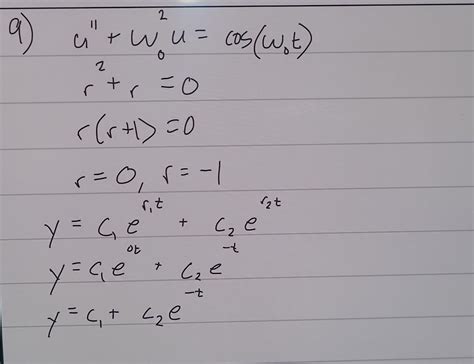 9) u'' + w₀²u = cos(w₀t)
r² + r = 0
r(r+1) = 0
r = 0, r = -1
y = c₁e^r₁t + c₂e^r₂t
y = c₁e^0t + c₂e^-t
y = c₁ + c₂e^-t